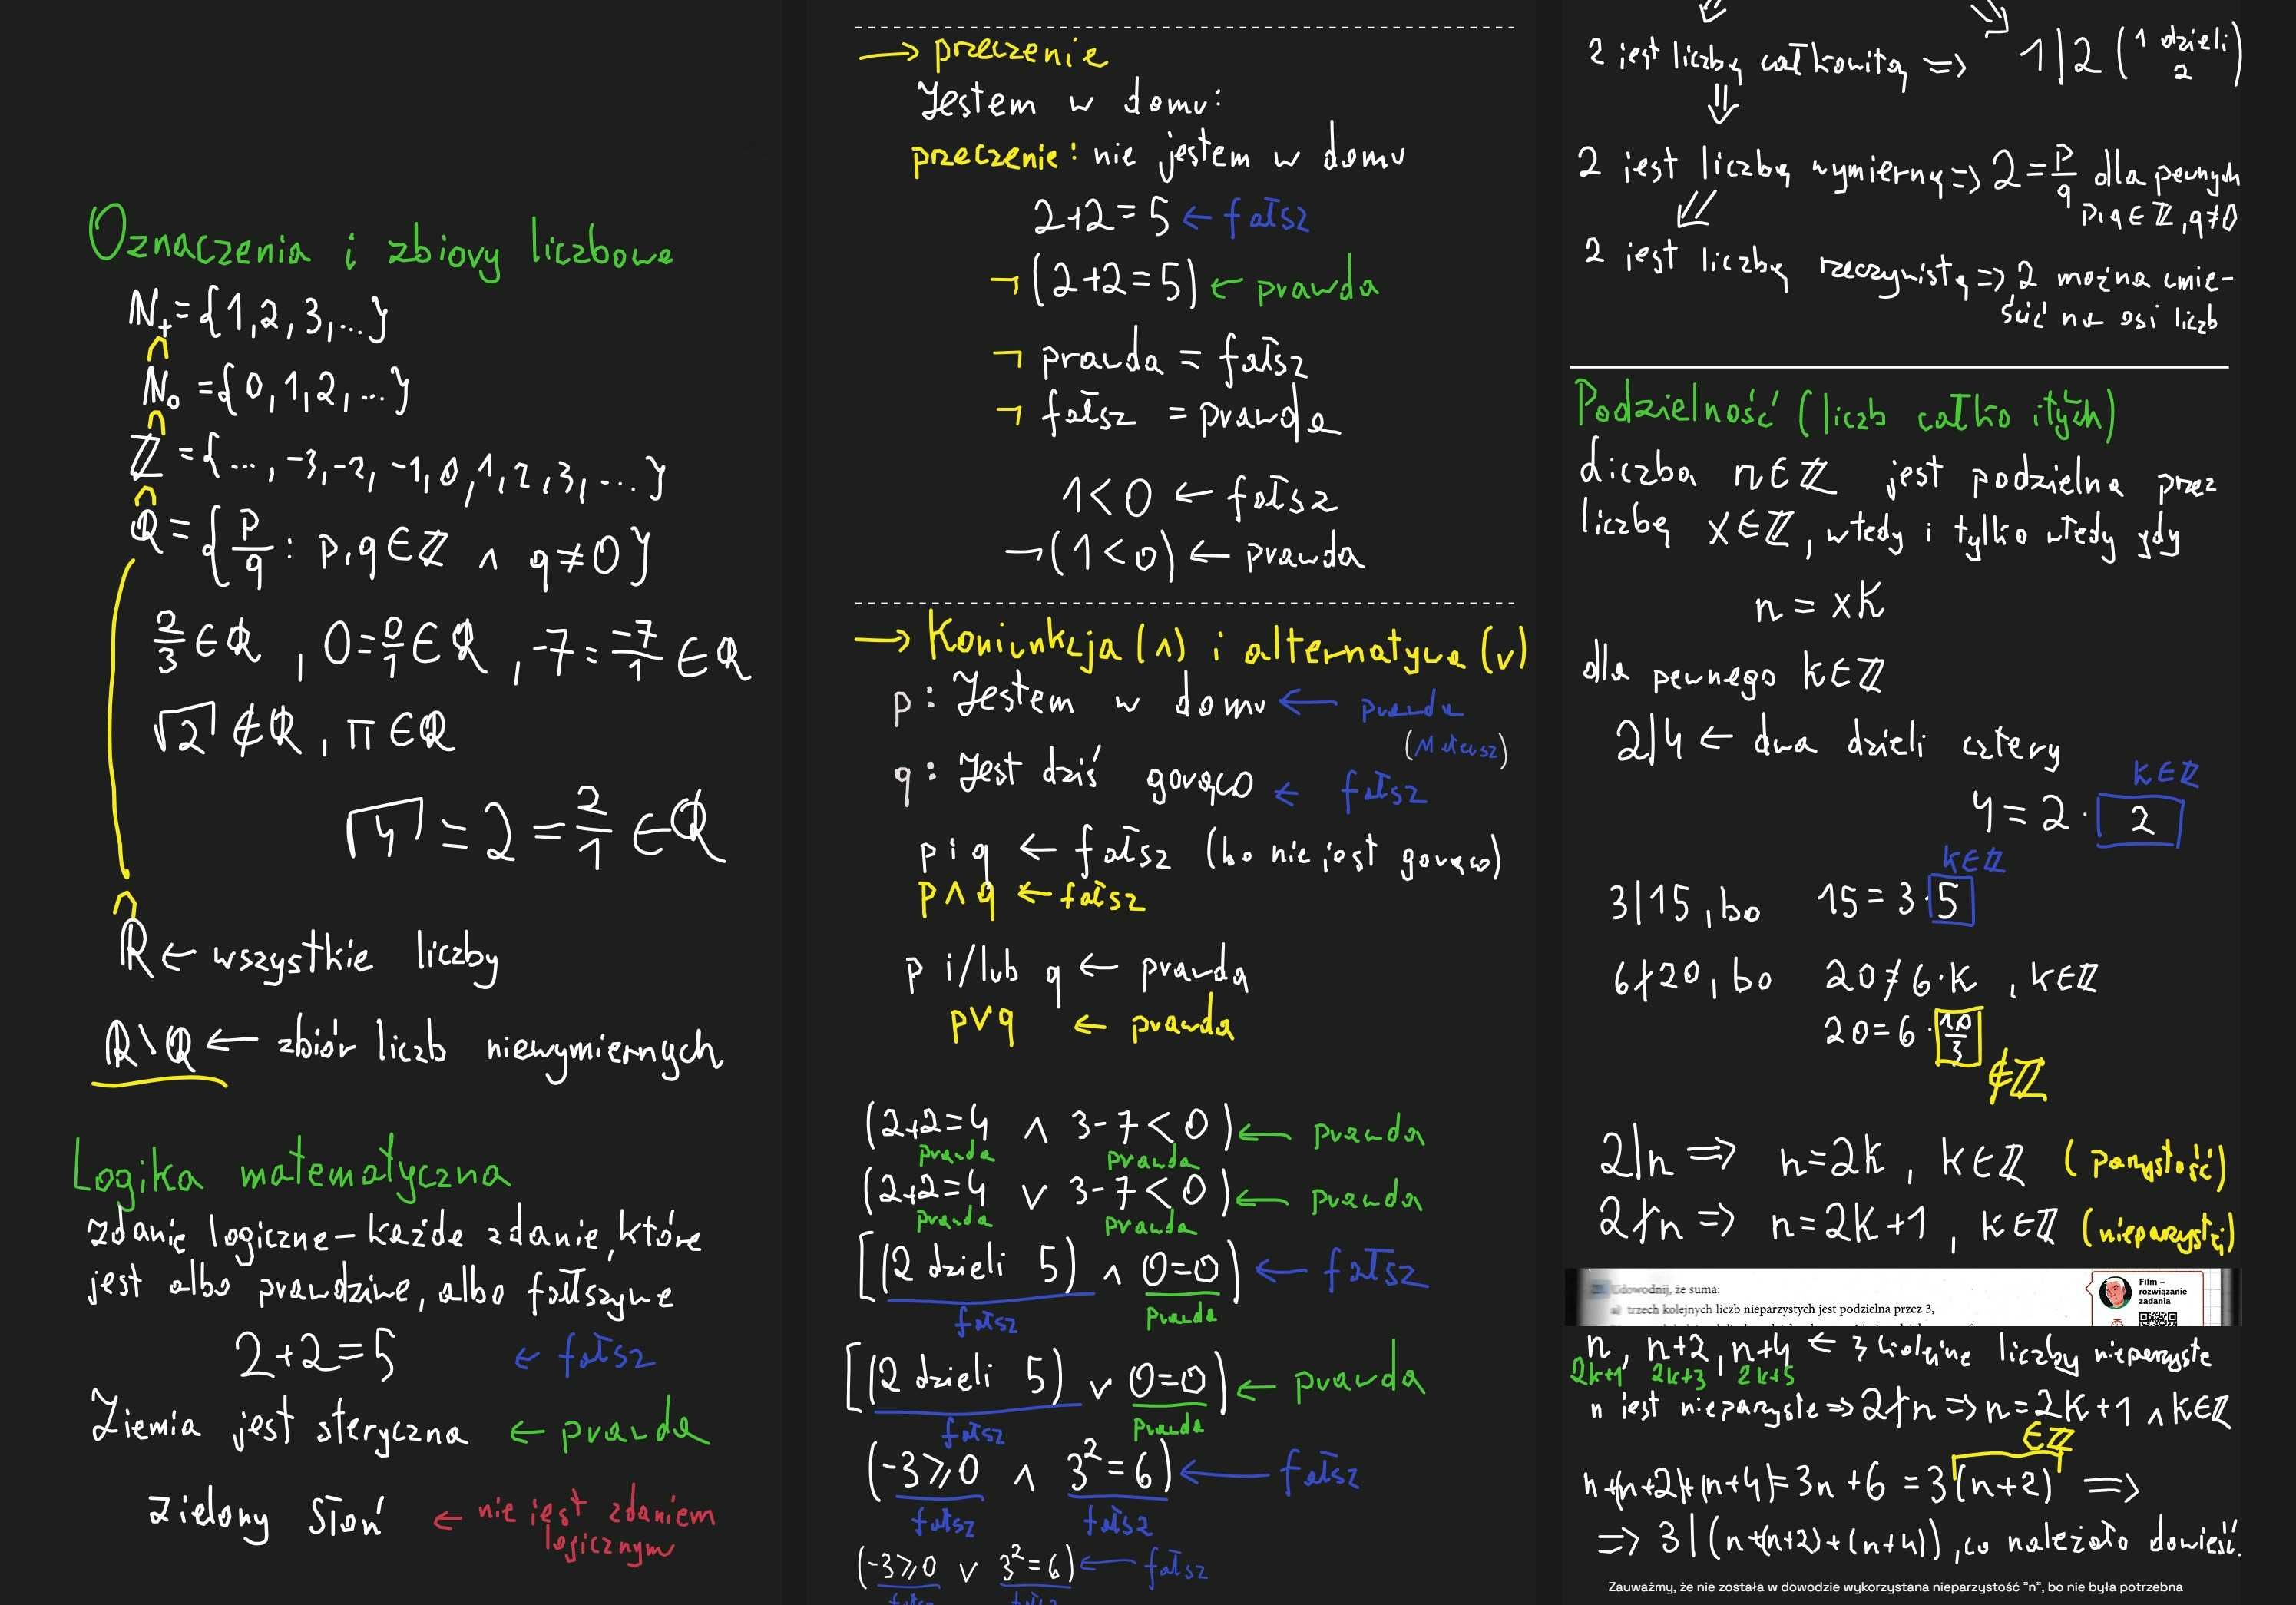 Oznaczenia i zbiory liczbowe
N₊ = {1, 2, 3, ...}
∩
N₀ = {0, 1, 2, ...}
∩
ℤ = {..., -3, -2, -1, 0, 1, 2, 3, ...}
∩
ℚ = {p/q : p, q ∈ ℤ ∧ q ≠ 0}
2/3 ∈ ℚ, 0 = 0/1 ∈ ℚ, -7 = -7/1 ∈ ℚ
√2 ∉ ℚ, π ∈ ℚ
√4 = 2 = 2/1 ∈ ℚ
∩
ℝ ← wszystkie liczby
ℝ \ ℚ ← zbiór liczb niewymiernych
Logika matematyczna
zdanie logiczne – każde zdanie, które
jest albo prawdziwe, albo fałszywe
2+2=5 ← fałsz
Ziemia jest sferyczna ← prawda
Zielony Słoń ← nie jest zdaniem
logicznym
→ przeczenie
Jestem w domu:
przeczenie: nie jestem w domu
2+2=5 ← fałsz
¬(2+2=5) ← prawda
¬ prawda = fałsz
¬ fałsz = prawda
1<0 ← fałsz
¬(1<0) ← prawda
→ Koniunkcja (∧) i alternatywa (∨)
p: Jestem w domu ← prawda
(Mateusz)
q: Jest dziś gorąco ← fałsz
p i q ← fałsz (bo nie jest gorąco)
p∧q ← fałsz
p i/lub q ← prawda
p∨q ← prawda
(2+2=4 ∧ 3-7<0) ← prawda
prawda prawda
(2+2=4 ∨ 3-7<0) ← prawda
prawda prawda
[(2 dzieli 5) ∧ 0=0) ← fałsz
fałsz prawda
[(2 dzieli 5) ∨ 0=0) ← prawda
fałsz prawda
(-3⩾0 ∧ 3²=6) ← fałsz
fałsz fałsz
(-3⩾0 ∨ 3²=6) ← fałsz
fałsz fałsz
2 jest liczbą całkowitą ⇒ 1|2 (1 dzieli 2)
⇓
2 jest liczbą wymierną ⇒ 2 = p/q dla pewnych
p, q ∈ ℤ, q≠0
2 jest liczbą rzeczywistą ⇒ 2 można umie-
ścić na osi liczb
Podzielność (liczb całko itych)
Liczba n∈ℤ jest podzielna przez
liczbę x∈ℤ, wtedy i tylko wtedy gdy
n = xk
dla pewnego k∈ℤ
2|4 ← dwa dzieli cztery
k∈ℤ
4 = 2 · 2
k∈ℤ
3|15, bo 15 = 3·5
6∤20, bo 20 ≠ 6·k, k∈ℤ
20 = 6 · 10/3
∉ℤ
2|n ⇒ n=2k, k∈ℤ (parzystość)
2∤n ⇒ n=2k+1, k∈ℤ
Udowodnij, że suma:
a) trzech kolejnych liczb nieparzystych jest podzielna przez 3,
Film –
rozwiązanie
zadania
n, n+2, n+4 ← 3 kolejne liczby nieparzyste
2k+1 2k+3 2k+5
n jest nieparzyste ⇒ 2∤n ⇒ n=2k+1 ∧ k∈ℤ
∈ℤ
n+(n+2)+(n+4)=3n+6 = 3(n+2) ⇒
⇒ 3|(n+(n+2)+(n+4)), co należało dowieść.
Zauważmy, że nie została w dowodzie wykorzystana nieparzystość "n", bo nie była potrzebna